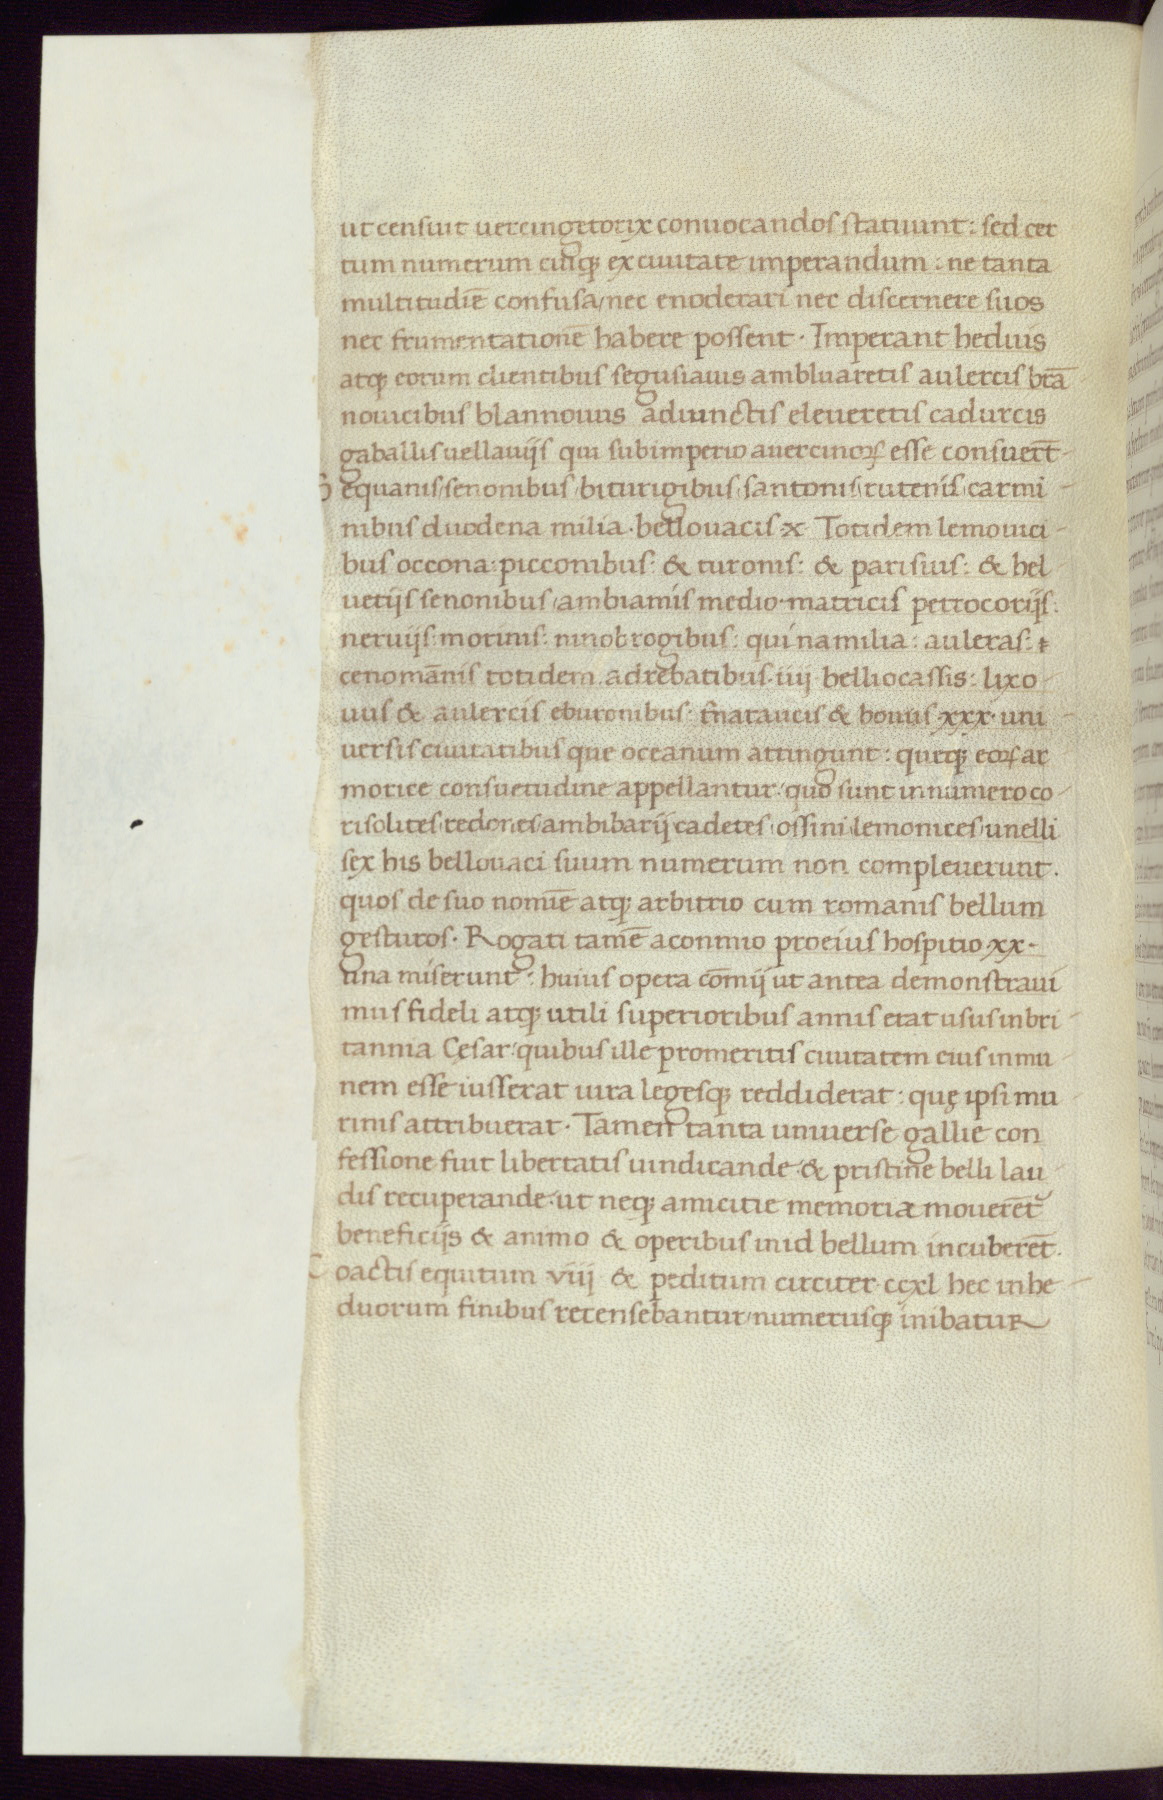 ut censuit uercingetorix conuocandos statuunt: sed cer
tum numerum cuiqꝫ ex ciuitate imperandum: ne tanta
multitudiē confusa/nec enoderari nec discernere suos
nec frumentationē habere possent · Imperant heduis
atqꝫ eorum clientibus segusiauis ambluaretis aulercis brā
nouicibus blannouus adiunctis eleueretis cadurcis
gaballis uellauijs qui sub imperio auercinoꝝ esse consuerūt
Sequanis/senonibus/biturigibus/santonis/rutenis/carmi
nibus duodena milia · bellouacis x Totidem lemouici
bus occona: picconibus: & turonis: & parisius: & hel
uetijs senonibus/ambiamis medio·matricis petrocorijs:
neruijs: morinis: ninobrogibus: quina milia: auleras: ⁊
cenomānis totidem adrebatibus·iiij· belliocassis: lixo
uus & aulercis eburonibus: & houiis xxx· uni
uersis ciuitatibus que oceanum attingunt: queqꝫ eoꝝ ar
morice consuetudine appellantur: quo sunt in numero co
risolites/redones/ambibarij/cadetes/ossini/lemonices/unelli
sex his bellouaci suum numerum non compleuerunt.
quos de suo nomiē atqꝫ arbitrio cum romanis bellum
gesturos · Rogati tamē a conmio pro eius hospitio·xx·
una miserunt: huius opera cōmij ut antea demonstraui
mus fideli atqꝫ utili superioribus annis erat usus in bri
tannia Cęsar: quibus ille pro meritis ciuitatem eius inmu
nem esse iusserat iura legesqꝫ reddiderat: quę ipsi mu
rinis attribuerat · Tamen tanta uniuerse gallie con
fessione fuit libertatis uindicande·& pristine belli lau
dis recuperande: ut neqꝫ amicitie memoria mouerēt
beneficijs & animo & operibus in id bellum incuberēt.
Coactis equitum viij & peditum circiter·ccxl hec in he
duorum finibus recensebantur/numerusqꝫ inibatur